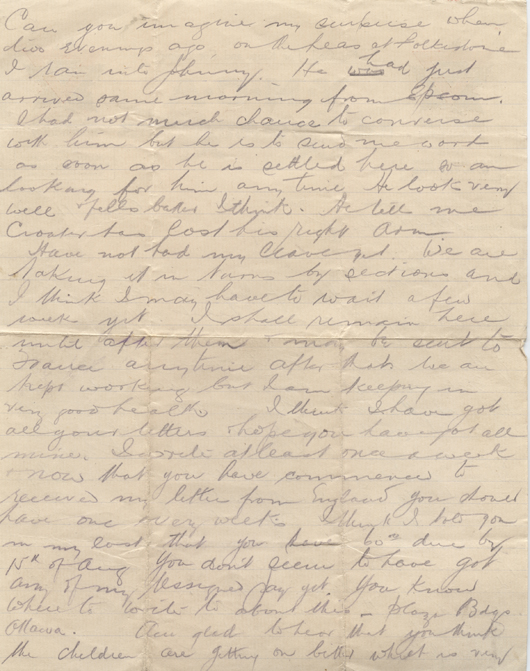 Can you imagine my surprise when
two evenings ago, on the Leas at Folkestone
I ran into Johnny. He had just
arrived same morning from Epsom.
I had not much chance to converse
with him but he is to send me word
as soon as he is settled here so am
looking for him any time. He looks very
well & feels better I think. He tells me
has lost his right arm
Have not had my leave yet. We are
taking it in turns by sections and
I think I may have to wait a few
weeks yet. I shall remain here
until after then & may be sent to
France anytime after that. We are
kept working but I am keeping in
very good health. I think I have got
all your letters & hope you have got all
mine. I write at least once a week
& now that you have commenced to
received my letter from England you should
have one every week. I told you
in my last that you have due by
15th of Aug You don't seem to have got
any of my Assigned pay yet. You know
where to write to about this - Plaza Bdgs.
Ottawa. Am glad to hear that you think
the children are getting on better what is very